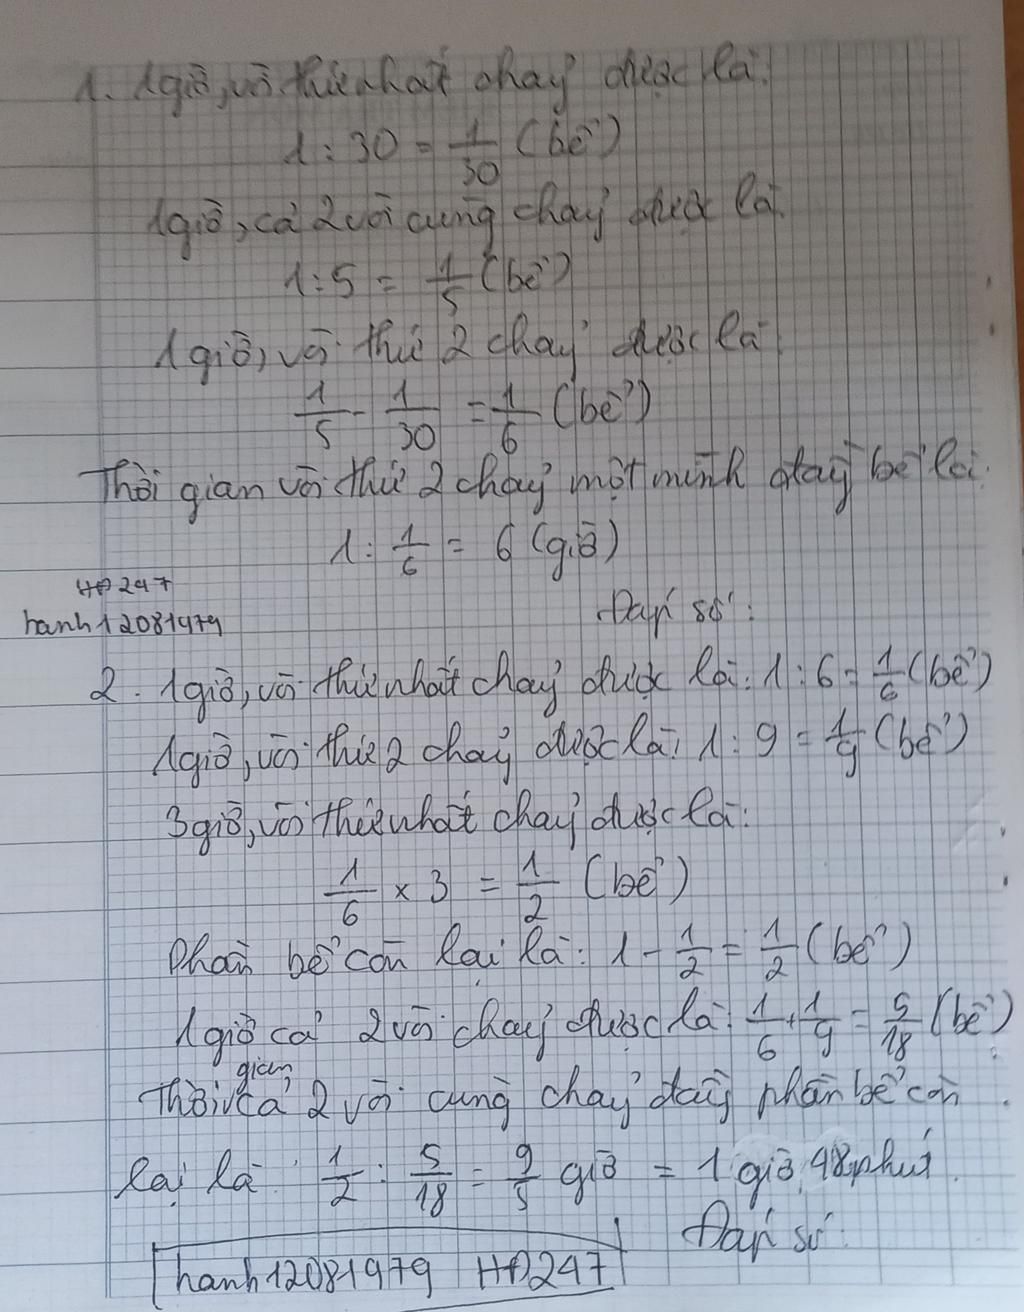 1. 1giờ, vòi thứ nhất chảy được là:
1 : 30 = 1/30 (bể)
1giờ, cả 2 vòi cùng chảy được là:
1 : 5 = 1/5 (bể)
1 giờ, vòi thứ 2 chảy được là
1/5 - 1/30 = 1/6 (bể)
Thời gian vòi thứ 2 chảy một mình đầy bể là:
1 : 1/6 = 6 (giờ)
HĐ247
hanh12081979
Đáp số:
2. 1giờ, vòi thứ nhất chảy được là: 1 : 6 = 1/6 (bể)
1giờ, vòi thứ 2 chảy được là: 1 : 9 = 1/9 (bể)
3giờ, vòi thứ nhất chảy được là:
1/6 x 3 = 1/2 (bể)
Phần bể còn lại là: 1 - 1/2 = 1/2 (bể)
1giờ cả 2 vòi chảy được là: 1/6 + 1/9 = 5/18 (bể)
Thời gian cả 2 vòi cùng chảy đầy phần bể còn
lại là : 1/2 : 5/18 = 9/5 giờ = 1 giờ 48 phút.
Đáp số:
hanh12081979 HĐ247